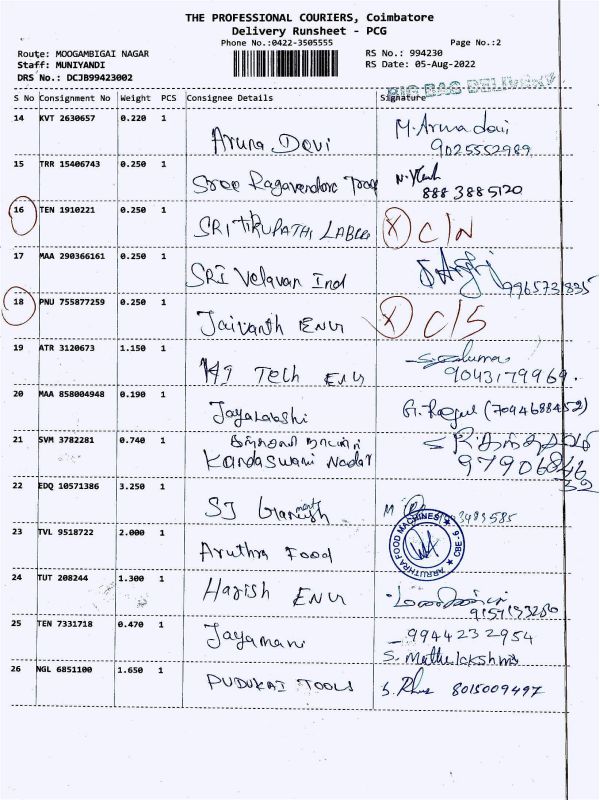 THE PROFESSIONAL COURIERS, Coimbatore
Delivery Runsheet - PCG
Phone No.:0422-3505555 Page No.:2
Route: MOOGAMBIGAI NAGAR RS No.: 994230
Staff: MUNIYANDI RS Date: 05-Aug-2022
DRS No.: DCJB99423002
BIG BAG DELIVERY
S No Consignment No Weight PCS Consignee Details Signature
14 KVT 2630657 0.220 1 Aruna Devi M. Aruna devi
9025552989
15 TRR 15406743 0.250 1 Sree Ragavendora
888 3885120
16 TEN 1910221 0.250 1 SRI TIRUPATHI LABLES X C/N
17 MAA 290366161 0.250 1 SRI Velavan Ind
9965731835
18 PNU 755877259 0.250 1 Jaivanth ENGG X C/S
19 ATR 3120673 1.150 1 HI Tech ENGG
9043179969.
20 MAA 858004948 0.190 1 Jayalakshi G. Ragul (7094688452)
21 SVM 3782281 0.740 1
Kandaswami Nadar 97906846
32
22 EDQ 10571386 3.250 1 SJ Garmish
ment
23 TVL 9518722 2.000 1 Aruthra Food ARRUTHRA FOOD MACHINES CBE-6
24 TUT 208244 1.300 1 Harish ENGG
9151133280
25 TEN 7331718 0.470 1 Jayamani 9944232954
S. Muthulakshmi
26 NGL 6851100 1.650 1 PUDUKAI TOOLS 8015009497